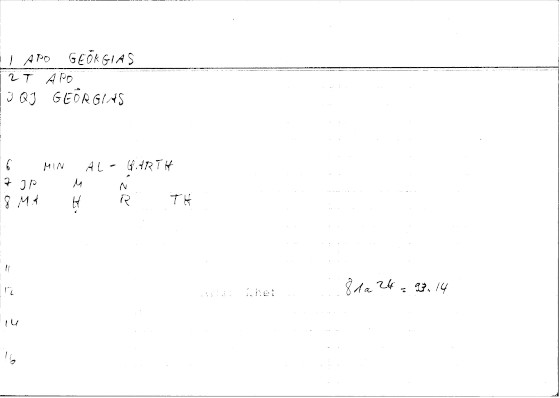 1 APO GEŌRGIAS
2 T APO
3 QJ GEŌRGIAS
6 MIN AL-ḤARTH
7 JP M N
8 MA Ḥ R TH
11
12 81a24 = 93.14
14
16